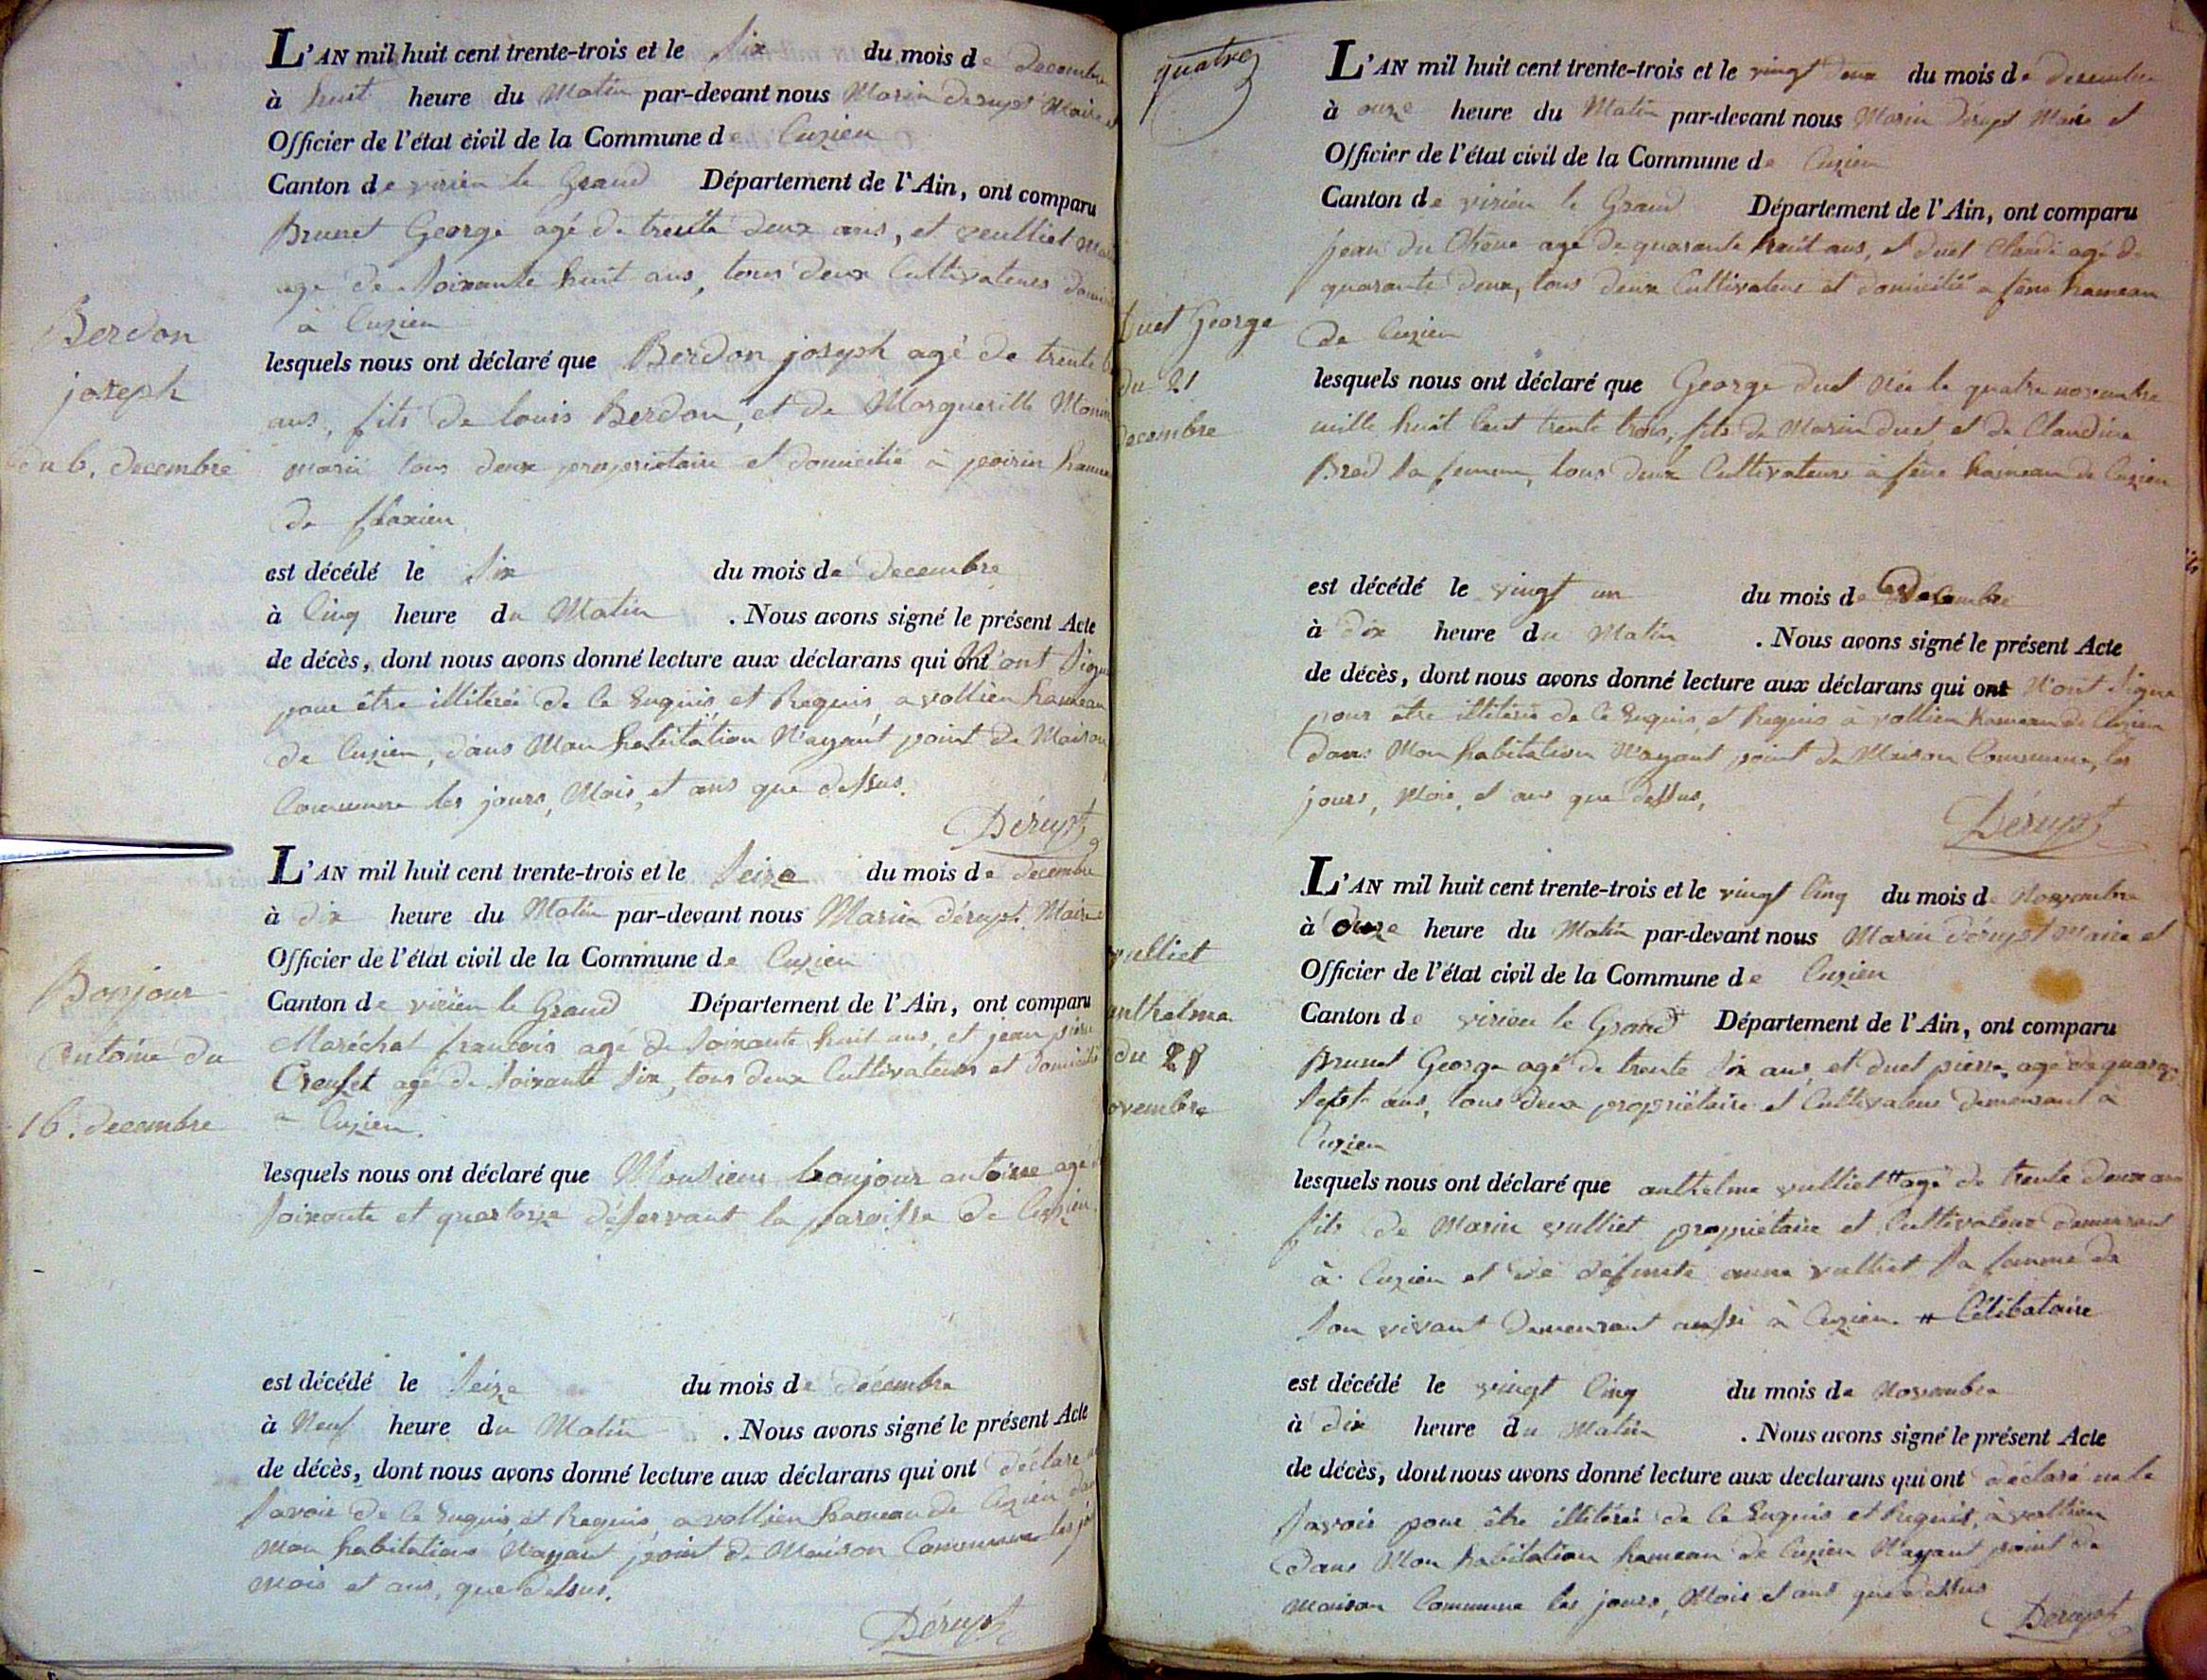 L'AN mil huit cent trente-trois et le Six du mois de decembre
à huit heure du Matin par-devant nous Marin derupt Maire et
Officier de l'état civil de la Commune de Cuzien
Canton de virieu le Grand Département de l'Ain, ont comparu
Brunet George agé de trente deux ans, et veulliet
age de Soixante huit ans, tous deux Cultivateurs
à Cuzien
Berdon
joseph
du 6, decembre
lesquels nous ont déclaré que Berdon joseph agé de trente
ans, fils de louis Berdon, et de Marguerille Monin
marié tous deux proprietaire et domicilié à poirin
de flaxieu
est décédé le Six du mois de decembre
à Cinq heure du Matin . Nous avons signé le présent Acte
de décès, dont nous avons donné lecture aux déclarans qui ont N'ont Signé
pour être illiterée de ce Enquis et Requis, a vollien hameau
de Cuzien, dans Mon habitation N'ayant point de Maison
Commune les jours, Mois, et ans que dessus.
Dérupt
L'AN mil huit cent trente-trois et le Seize du mois de decembre
à dix heure du Matin par-devant nous Marin dérupt Maire
Officier de l'état civil de la Commune de Cuzien
Canton de virieu le Grand Département de l'Ain, ont comparu
Maréchal francois agé de Soixante huit ans, et jean
Creuset agé de Soixante Six, tous deux Cultivateurs et domicilié
a Cuzien.
Bonjour
antoine du
16. decembre
lesquels nous ont déclaré que Monsieur bonjour antoine agé
Soixante et quartorze déservant la paroisse de Cuzien.
est décédé le Seize du mois de décembre
à Neuf heure du Matin . Nous avons signé le présent Acte
de décès, dont nous avons donné lecture aux déclarans qui ont déclaré
Savoir de ce Enquis et Requis, a vollien hameau de Cuzien
Mon habitation N'ayant point de Maison Commune les
Mois et ans, que dessus.
Dérupt
quatre
L'AN mil huit cent trente-trois et le vingt deux du mois de decembre
à onze heure du Matin par-devant nous Marin dérupt Maire et
Officier de l'état civil de la Commune de Cuzien
Canton de virieu le Grand Département de l'Ain, ont comparu
jean du Chêne agé de quarante huit ans, et duet Claude agé de
quarante deux, tous deux Cultivateur et domicilié a hameau
de Cuzien
duet George
du 21
decembre
lesquels nous ont déclaré que George duet Née le quatre novembre
mille huit Cent trente trois, fils de Marin duet, et de Claudine
Bred Sa femme, tous deux Cultivateurs à hameau de Cuzien
est décédé le vingt un du mois de decembre
à dix heure du Matin . Nous avons signé le présent Acte
de décès, dont nous avons donné lecture aux déclarans qui ont N'ont Signé
pour être illiterée de ce Enquis, et Requis à vollien hameau de Cuzien
dans Mon habitation N'ayant point de Maison Commune, les
jours, Mois, et ans que dessus,
Dérupt
L'AN mil huit cent trente-trois et le vingt Cinq du mois de Novembre
à Onze heure du Matin par-devant nous Marin dérupt Maire et
Officier de l'état civil de la Commune de Cuzien
Canton de virieu le Grand Département de l'Ain, ont comparu
Brunet George agé de trente Six ans, et duet pierre, agé de
Sept ans, tous deux propriétaire et Cultivateur demeurant à
Cuzien
vulliet
anthelme
du
ovembre
lesquels nous ont déclaré que anthelme vulliet # agé de trente deux ans
fils de Marin vulliet propriétaire et Cultivateur demeurant
à Cuzien et de défunte anne vulliet Sa femme de
Son vivant demeurant aussi à Cuzien. # Célibataire
est décédé le vingt Cinq du mois de Novembre
à dix heure du Matin . Nous avons signé le présent Acte
de décès, dont nous avons donné lecture aux declarans qui ont déclaré ne le
Savoir pour être illiterée de ce Enquis et Requis, à vollien
dans Mon habitation hameau de Cuzien N'ayant point de
maison Commune les jours, Mois et ans que dessus
Dérupt